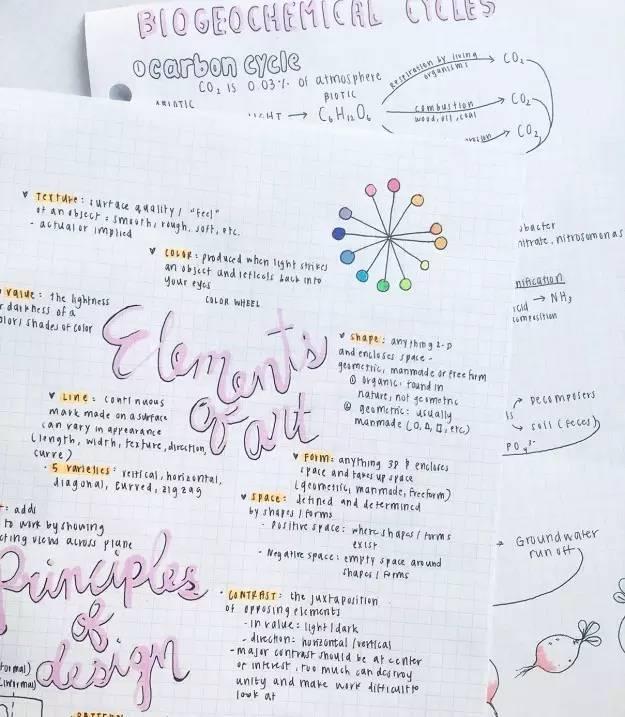 BIOGEOCHEMICAL CYCLES
① carbon cycle
CO₂ IS 0.03% of atmosphere
BIOTIC
→ C₆H₁₂O₆
respiration by living
organisms
CO₂
combustion
wood, oil, coal
CO₂
CO₂
nitrate, nitrosomonas
→ NH₃
→ decomposers
→ soil (feces)
PO₄³⁻
→ Groundwater
run off
Elements
of art
♥ Texture: surface quality / "feel"
of an object: smooth, rough, soft, etc.
- actual or implied
♥ COLOR: produced when light strikes
an object and reflects back into
your eyes
COLOR WHEEL
value: the lightness
darkness of a
shades of color
♥ LINE: continuous
mark made on a surface
can vary in appearance
(length, width, texture, direction,
curve)
- 5 varieties: vertical, horizontal,
diagonal, curved, zigzag
♥ shape: anything 2-D
and encloses space -
geometric, manmade or free form
① organic: found in
nature, not geometric
② geometric: usually
manmade (O, Δ, □, etc)
♥ FORM: anything 3D & encloses
space and takes up space
(geometric, manmade, freeform)
♥ space: defined and determined
by shapes / forms
- Positive space: where shapes / forms
exist
- Negative space: empty space around
shapes / forms
: adds
to work by showing
views across plane
Principles
of
design
• CONTRAST: the juxtaposition
of opposing elements
- in value: light / dark
- direction: horizontal / vertical
- major contrast should be at center
of interest, too much can destroy
unity and make work difficult to
look at
PATTERN